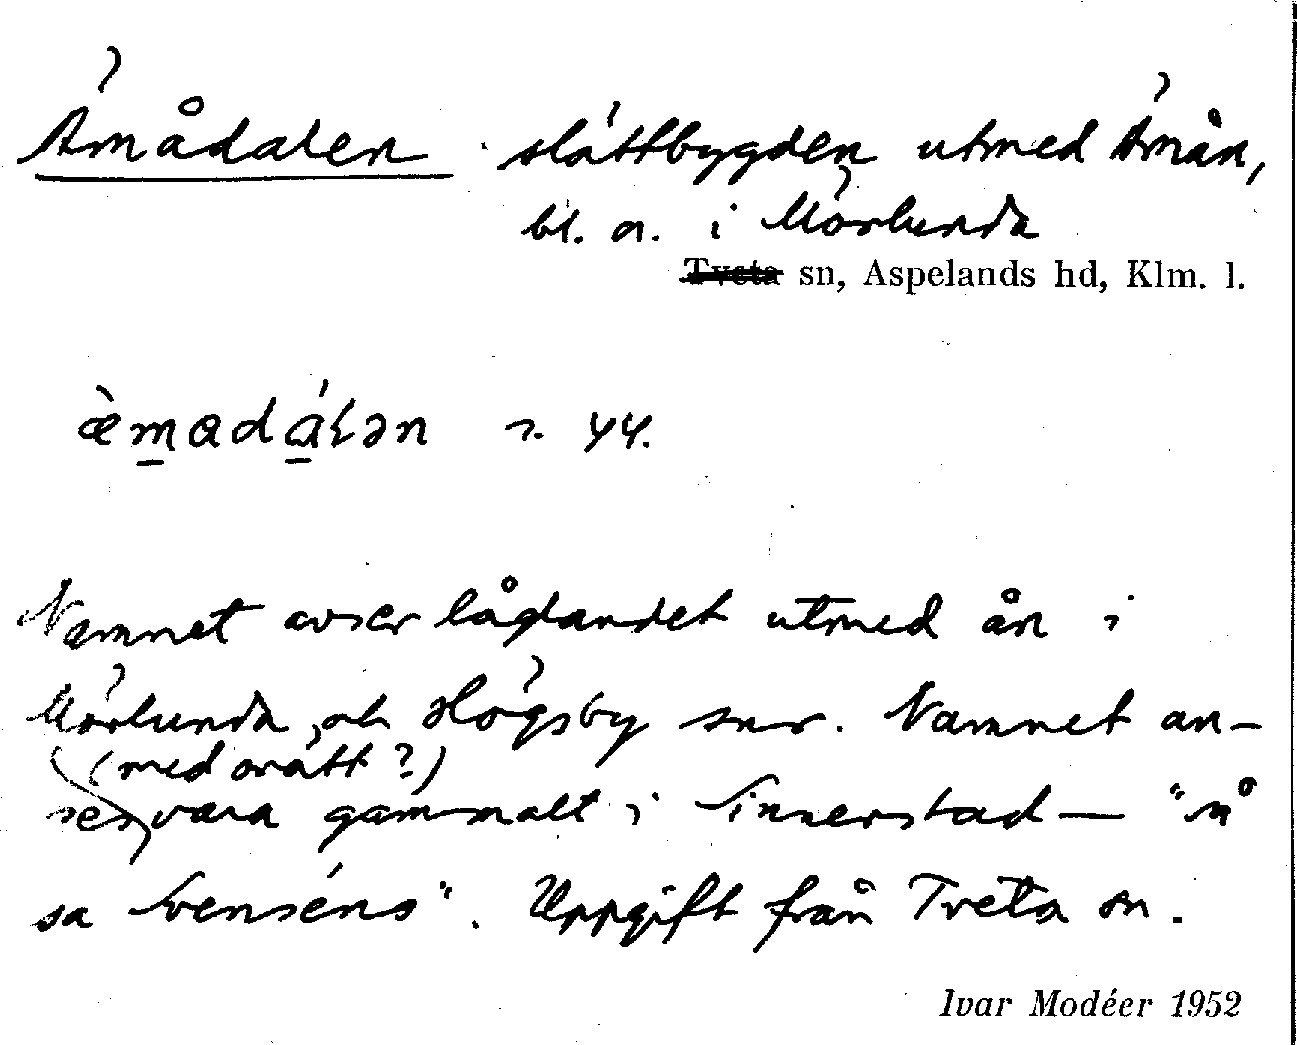 Ämådalen slättbygden utmed Ämån,
bl. a. i Mörlunda
Tveta sn, Aspelands hd, Klm. l.
æ̀madálən 44.
Namnet avser låglandet utmed ån i
Mörlunda och Högsby snr. Namnet an-
(med orätt?)
ses vara gammalt i Sinnerstad — "så
sa Svenséns". Uppgift från Tveta sn.
Ivar Modéer 1952